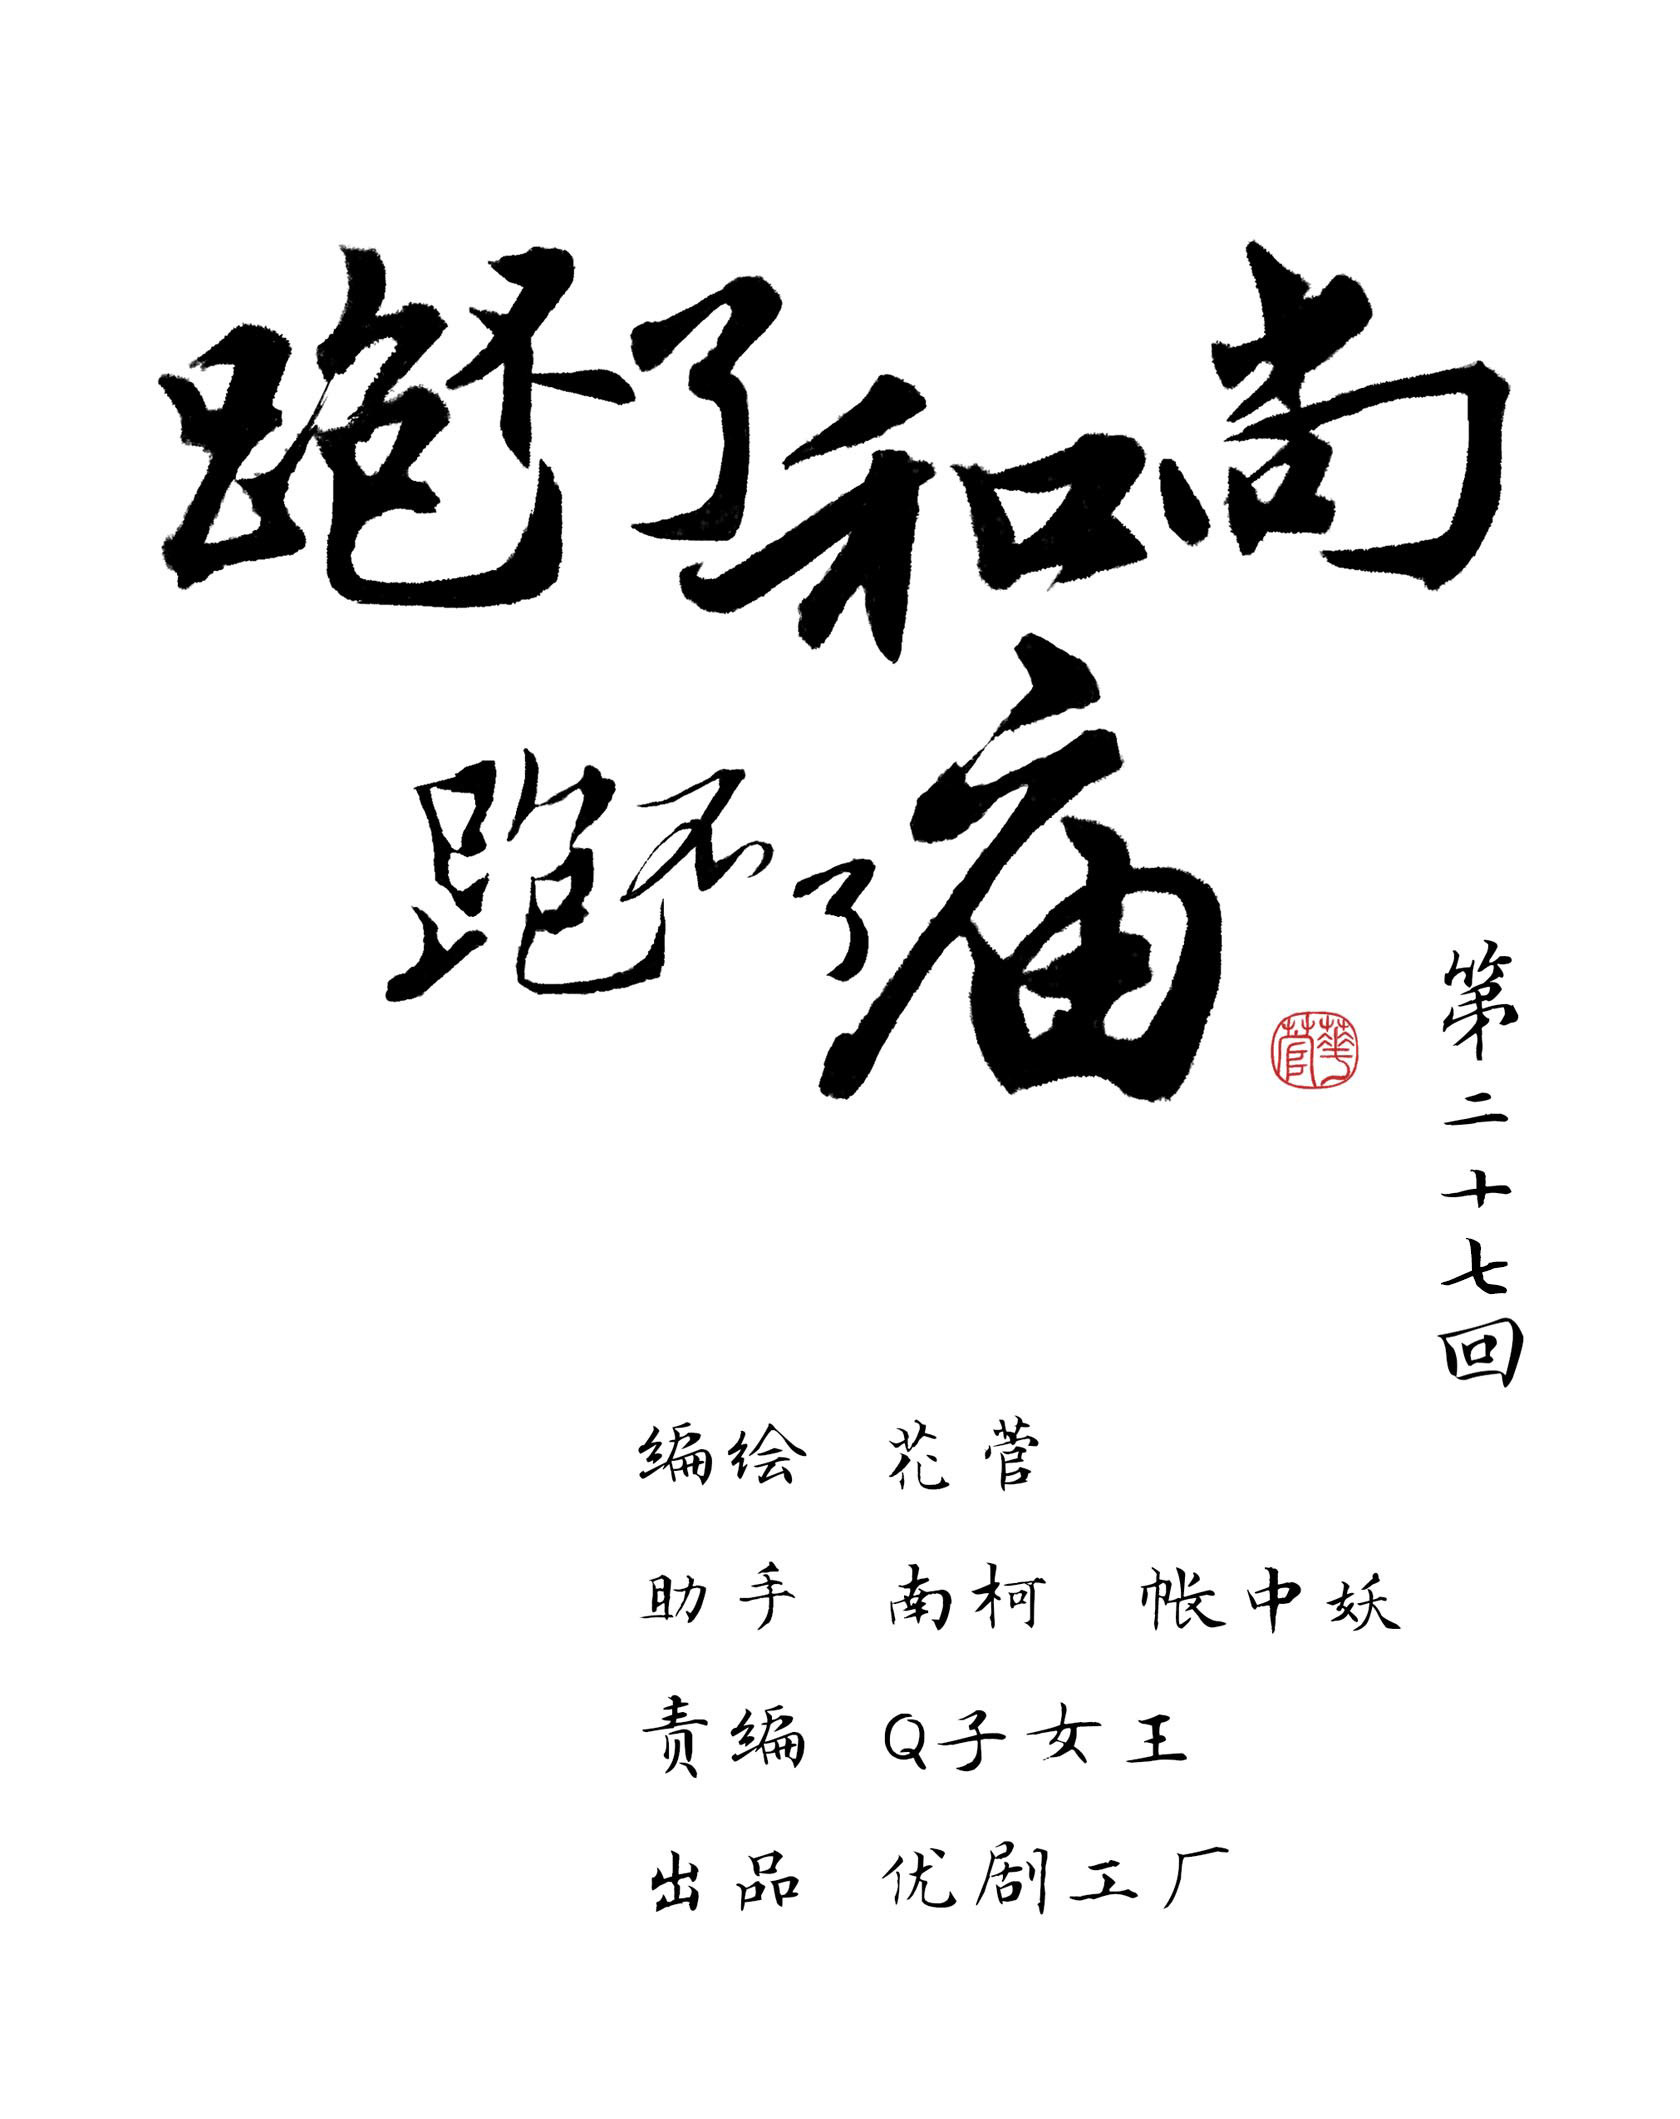 跑不了和尚
跑不了庙
華菅
第二十七回
编绘 花菅
助手 南柯 帐中妖
责编 Q子女王
出品 优剧工厂